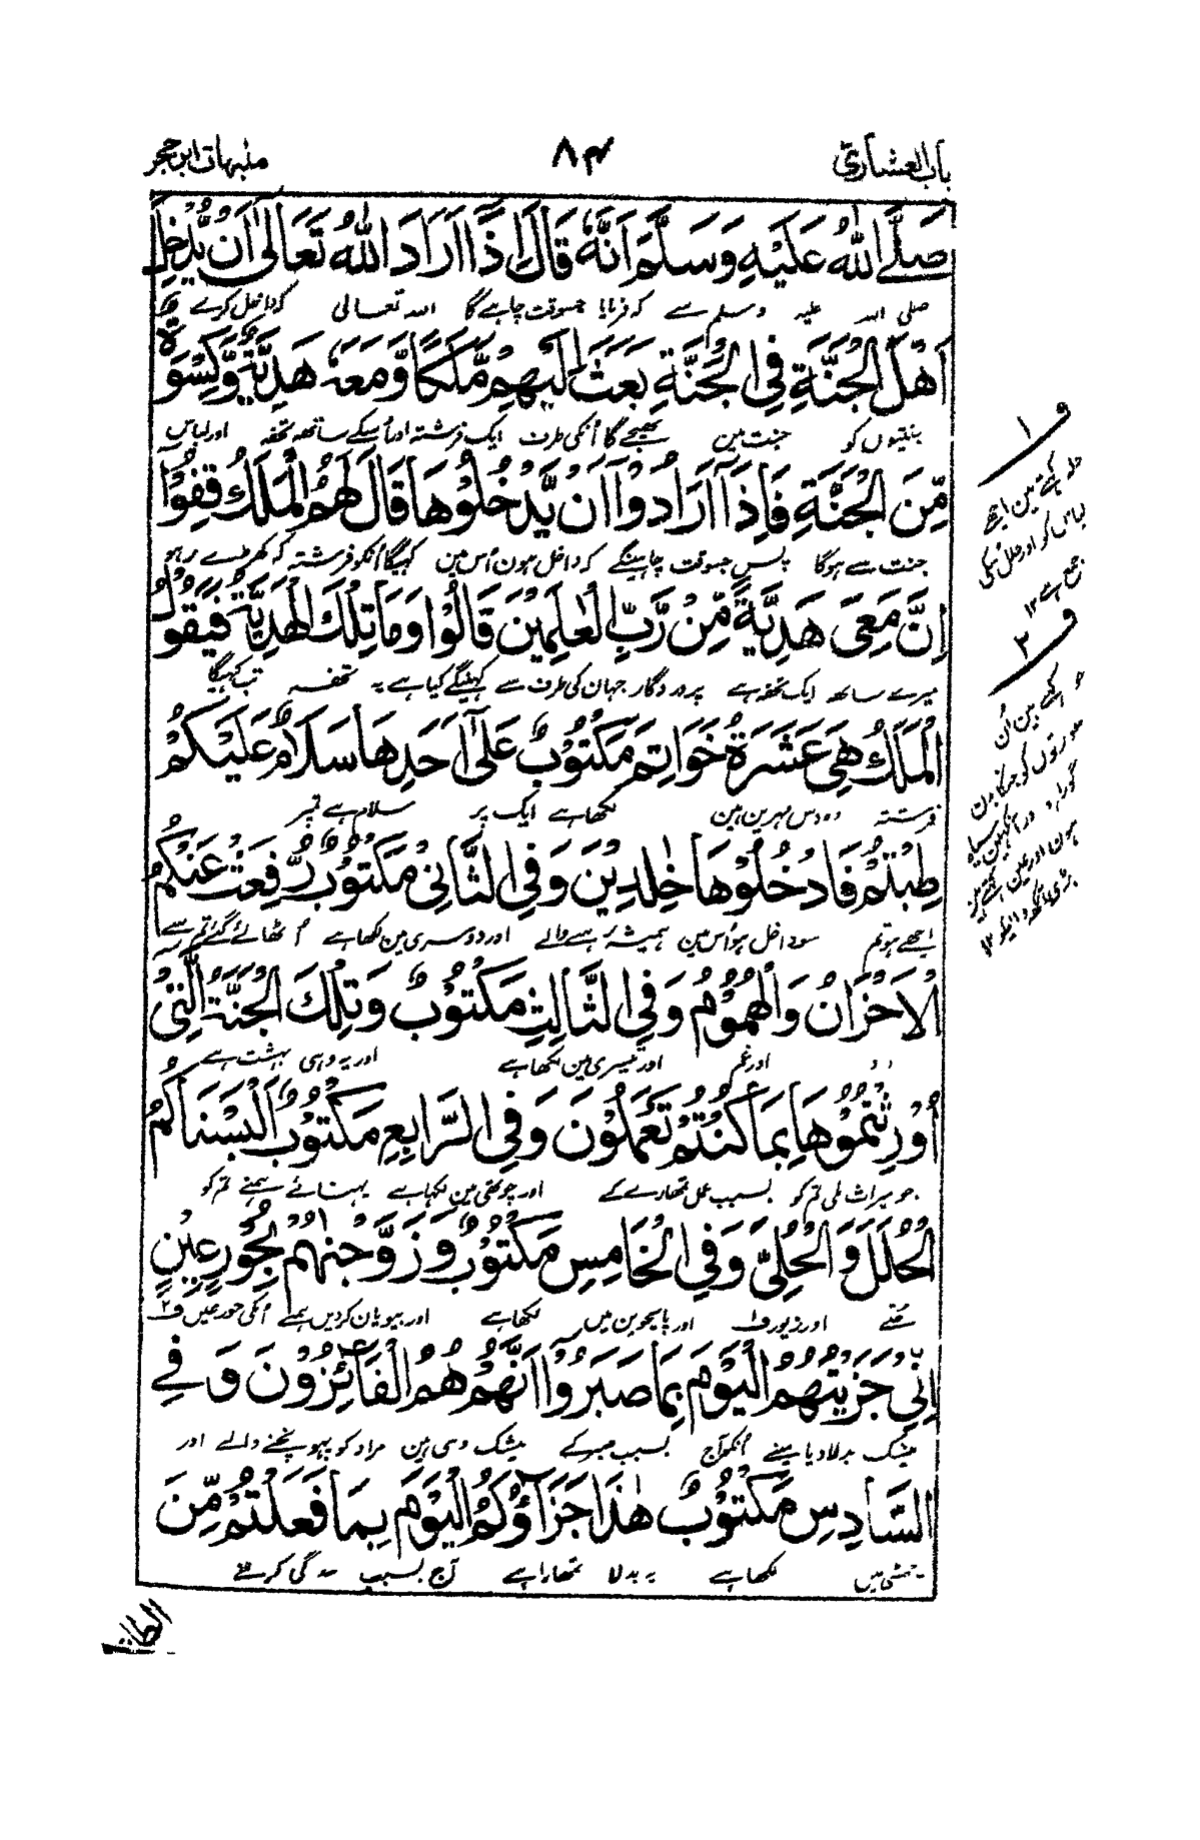 باب العشاری
۸۴
منبهات ابن حجر
صَلَّے اللّٰهُ عَلَیْهِ وَسَلَّمَ اَنَّهٗ قَالَ اِذَا اَرَادَ اللّٰهُ تَعَالٰی اَنْ یُّدْخِلَ
صلی اللہ علیہ وسلم سے کہ فرمایا جسوقت چاہے گا اللہ تعالی کہ داخل کرے
اَهْلَ الْجَنَّةِ فِی الْجَنَّةِ بَعَثَ اِلَیْهِمْ مَّلَكًا وَّمَعَهٗ هَدِیَّةٌ وَّكِسْوَةٌ
جنتیوں کو جنت مین بھیجے گا اُنکی طرف ایک فرشتہ اور اُسکے ساتھہ تحفہ اور لباس
مِّنَ الْجَنَّةِ فَاِذَا اَرَادُوْا اَنْ یَّدْخُلُوْهَا قَالَ لَهُمُ الْمَلَكُ قِفُوْا
جنت سے ہوگا پس جسوقت چاہینگے کہ داخل ہون اُس مین کہیگا اُنکو فرشتہ کہ کھڑے رہو
اِنَّ مَعِیَ هَدِیَّةً مِّنْ رَّبِّ الْعٰلَمِیْنَ قَالُوْا وَمَا تِلْكَ الْهَدِیَّةُ فَیَقُوْلُ
میرے ساتھہ ایک تحفہ ہے پروردگار جہان کی طرف سے کہینگے کیا ہے یہ تحفہ تب کہیگا
الْمَلَكُ هِیَ عَشَرَةُ خَوَاتِمَ مَكْتُوْبٌ عَلٰۤی اَحَدِهَا سَلَامٌ عَلَیْكُمْ
فرشتہ وہ دس مہرین ہین لکھا ہے ایک پر سلام ہے تمپر
طِبْتُمْ فَادْخُلُوْهَا خٰلِدِیْنَ وَفِی الثَّانِیْ مَكْتُوْبٌ رُّفِعَتْ عَنْكُمُ
اچھے ہو تم سو داخل ہو اُس مین ہمیشہ رہنے والے اور دوسری مین لکھا ہے اُٹھائے گئے تم سے
الْاَحْزَانُ وَالْهُمُوْمُ وَفِی الثَّالِثِ مَكْتُوْبٌ وَتِلْكَ الْجَنَّةُ الَّتِیْ
اور غم اور تیسری مین لکھا ہے اور یہ وہی بہشت ہے
اُوْرِثْتُمُوْهَا بِمَا كُنْتُمْ تَعْمَلُوْنَ وَفِی الرَّابِعِ مَكْتُوْبٌ اَلْبَسْنَاكُمُ
جو میراث لی تم کو بسبب عمل تمھارے کے اور چوتھی مین لکہا ہے پہنائے ہمنے تم کو
الْحُلَلَ وَالْحُلِیَّ وَفِی الْخَامِسِ مَكْتُوْبٌ وَزَوَّجْنٰهُمْ بِحُوْرٍ عِیْنٍ
حلے اور زیور ف۱ اور پانچوین میں لکھا ہے اور بیویان کردیں ہمنے اُنکی حور عین ف۲
اِنِّیْ جَزَیْتُهُمُ الْیَوْمَ بِمَا صَبَرُوْا اَنَّهُمْ هُمُ الْفَآئِزُوْنَ وَفِی
بیشک بدلا دیا مینے اُنکو آج بسبب صبر کے بیشک وہی ہین مراد کو پہونچنے والے اور
السَّادِسِ مَكْتُوْبٌ هٰذَا جَزَآؤُكُمُ الْیَوْمَ بِمَا فَعَلْتُمْ مِّنَ
چھٹی میں لکھا ہے یہ بدلا تمھارا ہے آج بسبب بندگی کرنے
ف ۱
حلہ کہتے ہین اچھے
لباس کو اور حلل اُسکی
جمع ہے ۱۲
ف ۲
حور کہتے ہین اُن
عورتوں کو جنکا بدن
گورا ہو اور آنکہین سیاہ
ہون اور عین کہتے ہین
بڑی آنکھہ والیکو ۱۲